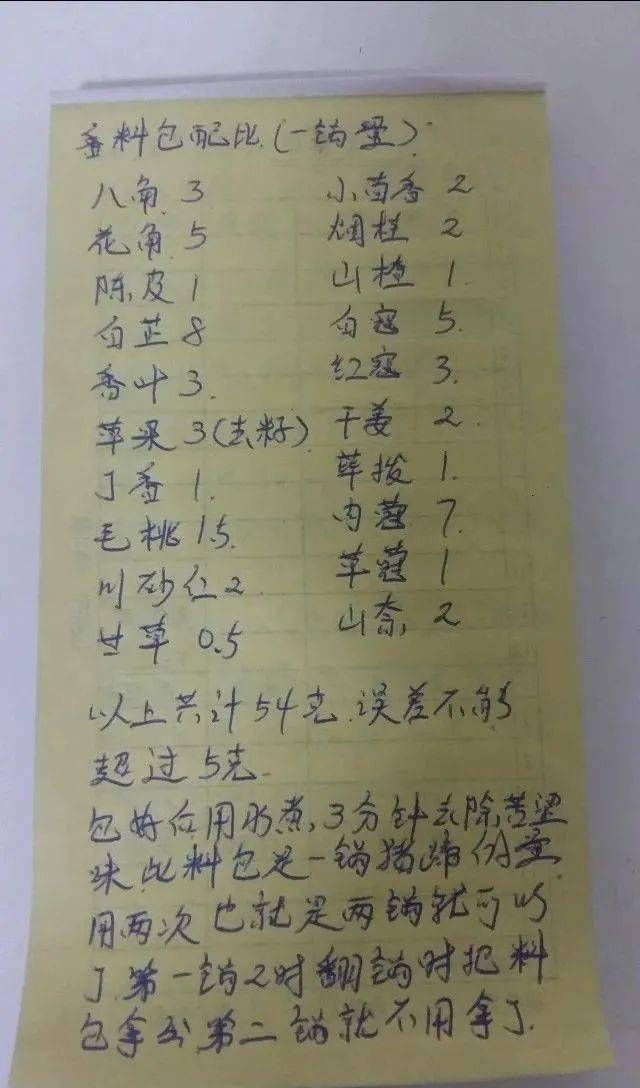 香料包配比.(一锅量)
八角 3 小茴香 2
花角 5 烟桂 2
陈皮 1 山楂 1.
白芷 8 白寇 5.
香叶 3. 红寇 3.
草果 3(去籽) 干姜 2.
丁香 1. 荜拨 1.
毛桃 1.5. 肉蔻 7.
川砂仁 2 草蔻 1
甘草 0.5 山奈 2
以上共计54克.误差不能
超过5克.
包好后用水煮,3分钟去除苦涩
味 此料包是一锅猪蹄的量
用两次 也就是两锅就可以
了.第一锅2时翻锅时把料
包拿出 第二锅就不用拿了.